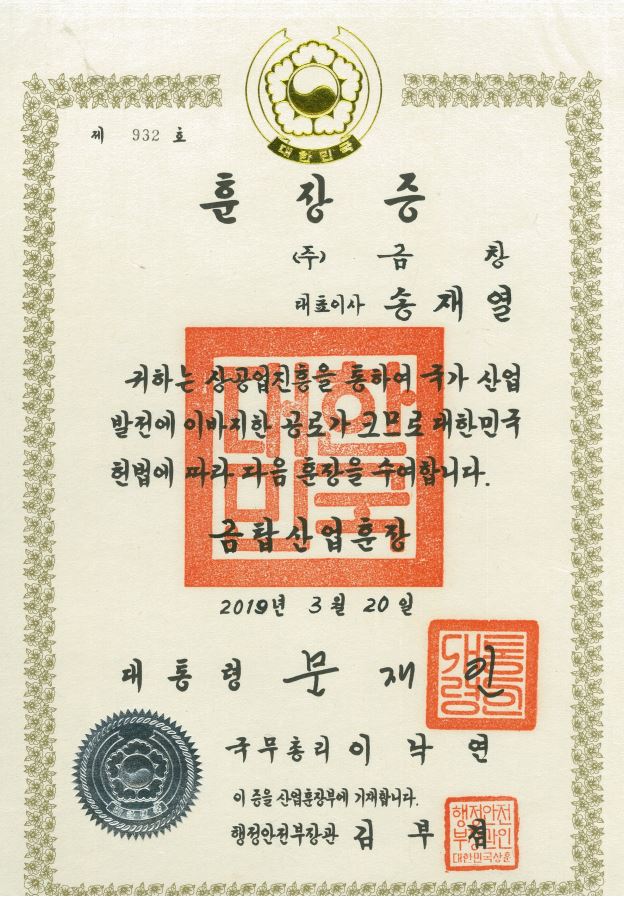 대한민국
제 932 호
훈장증
(주) 금창
대표이사 송재열
귀하는 상공업진흥을 통하여 국가 산업
발전에 이바지한 공로가 크므로 대한민국
헌법에 따라 다음 훈장을 수여합니다.
금탑산업훈장
2019년 3월 20일
대통령 문재인
국무총리 이낙연
이 증을 산업훈장부에 기재합니다.
행정안전부장관 김부겸
행정안전
부장관인
대한민국상훈